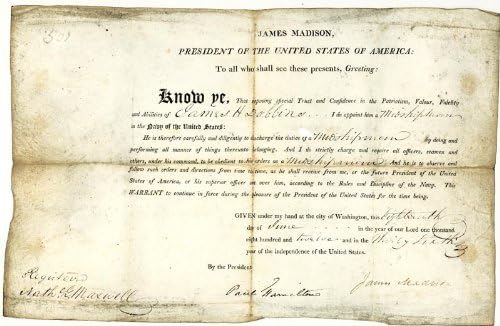 JAMES MADISON,
PRESIDENT OF THE UNITED STATES OF AMERICA:
To all who shall see these presents, Greeting:
Know ye, That reposing special Trust and Confidence in the Patriotism, Valour, Fidelity
and Abilities of James H I do appoint him a Midshipman
in the Navy of the United States:
He is therefore carefully and diligently to discharge the duties of a Midshipman by doing and
performing all manner of things thereunto belonging. And I do strictly charge and require all officers, seamen and
others, under his command, to be obedient to his orders as a Midshipman And he is to observe and
follow such orders and directions from time to time, as he shall receive from me, or the future President of the United
States of America, or his superior officer set over him, according to the Rules and Discipline of the Navy. This
WARRANT to continue in force during the pleasure of the President of the United States for the time being.
GIVEN under my hand at the city of Washington, this Eighteenth
day of June in the year of our Lord one thousand
eight hundred and twelve and in the thirty sixth
year of the independence of the United States.
By the President
Registered
Paul Hamilton
James Madison
Maxwell